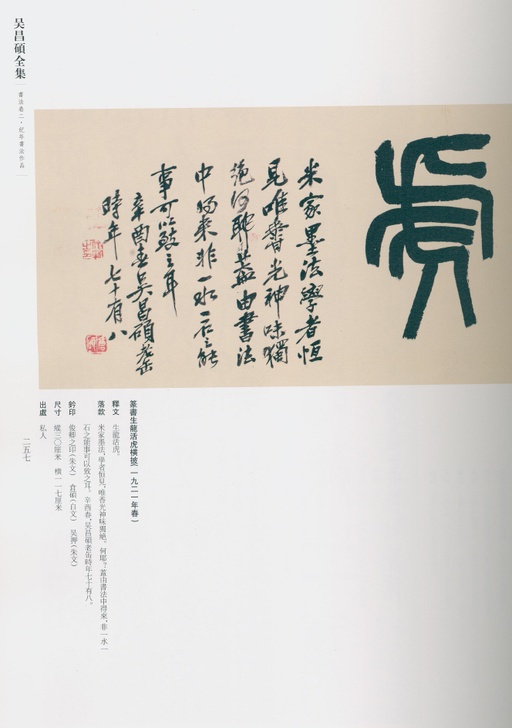 吴昌碩全集
書法卷二·紀年書法作品
虎
米家墨法學者恒
見唯香光神味獨
絕何耶蓋由書法
中得來非一水一石之能
事可以致之耳
辛酉春吴昌碩老缶
時年七十有八
篆書生龍活虎横披(一九二一年春)
釋文 生龍活虎。
落款 米家墨法，學者恒見，唯香光神味獨絕。何耶？蓋由書法中得來，非一水一
石之能事可以致之耳。辛酉春，吴昌碩老缶時年七十有八。
鈐印 俊卿之印(朱文) 倉碩(白文) 吴押(朱文)
尺寸 縱三〇厘米 横一一七厘米
出處 私人
二五七